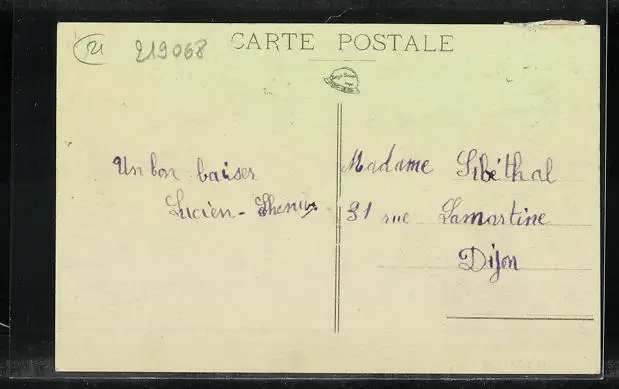 21
219068
CARTE POSTALE
Un bon baiser
Lucien -
Madame Sibéthal
31 rue Lamartine
Dijon